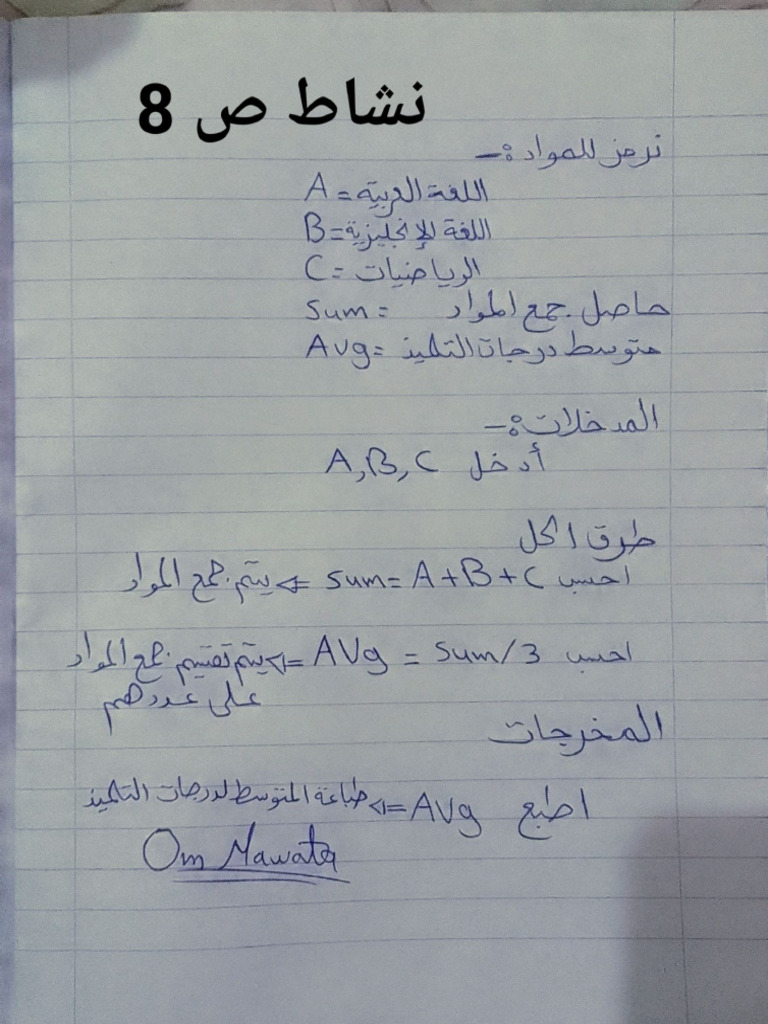 نشاط ص 8
نرمز للمواد :-
اللغة العربية = A
اللغة الإنجليزية = B
الرياضيات = C
حاصل جمع المواد = Sum
متوسط درجات التلميذ = Avg
المدخلات :-
أدخل A, B, C
طرق الحل
احسب sum = A + B + C <= يتم جمع المواد
احسب AVg = Sum/3 <= يتم تقسيم جمع المواد
على عددهم
المخرجات
اطبع AVg <= طباعة المتوسط لدرجات التلميذ
Om Mawata